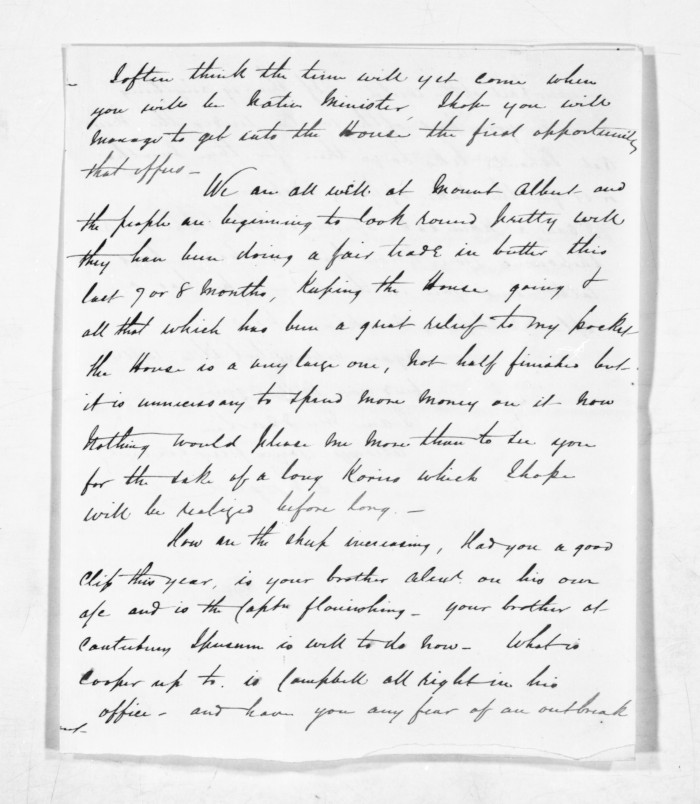 I often think the time will yet come when
you will be Native Minister, I hope you will
manage to get into the House the first opportunity
that offers -
We are all well at Mount Albert and
the people are beginning to look round pretty well
they have been doing a fair trade in butter this
last 7 or 8 Months, Keeping the House going &
all that which has been a great relief to my pocket
the House is a very large one, not half finished but
it is unnecessary to spend more money on it now
Nothing would please me more than to see you
for the sake of a long Korero which I hope
will be realized before long. -
How are the sheep increasing, Had you a good
clip this year, is your brother on his own
a/c and is the Captn flourishing - your brother at
Canterbury I presume is well to do now - What is
Cooper up to. is Campbell all right in his
office - and have you any fear of an outbreak